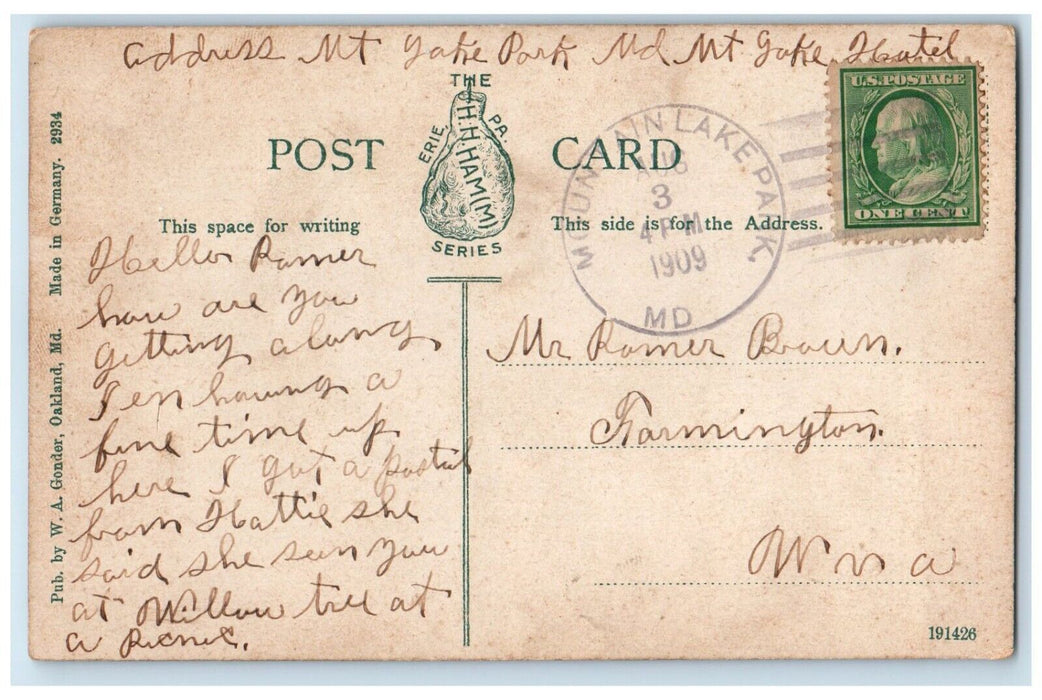 address Mt Lake Park Md Mt Lake Hotel
THE
H.H.HAM(M)
ERIE, PA.
SERIES
POST CARD
U.S.POSTAGE
ONE CENT
MOUNTAIN LAKE PARK,
3
4 PM
1909
MD
This space for writing
This side is for the Address.
Hello Romer
how are you
getting along
I en having a
fine time up
here I got a postal
from Hattie she
said she seen you
at Willow tree at
a Picnic.
Mr Romer Brown.
Farmington.
W va
Pub. by W. A. Gonder, Oakland, Md. Made in Germany. 2934
191426